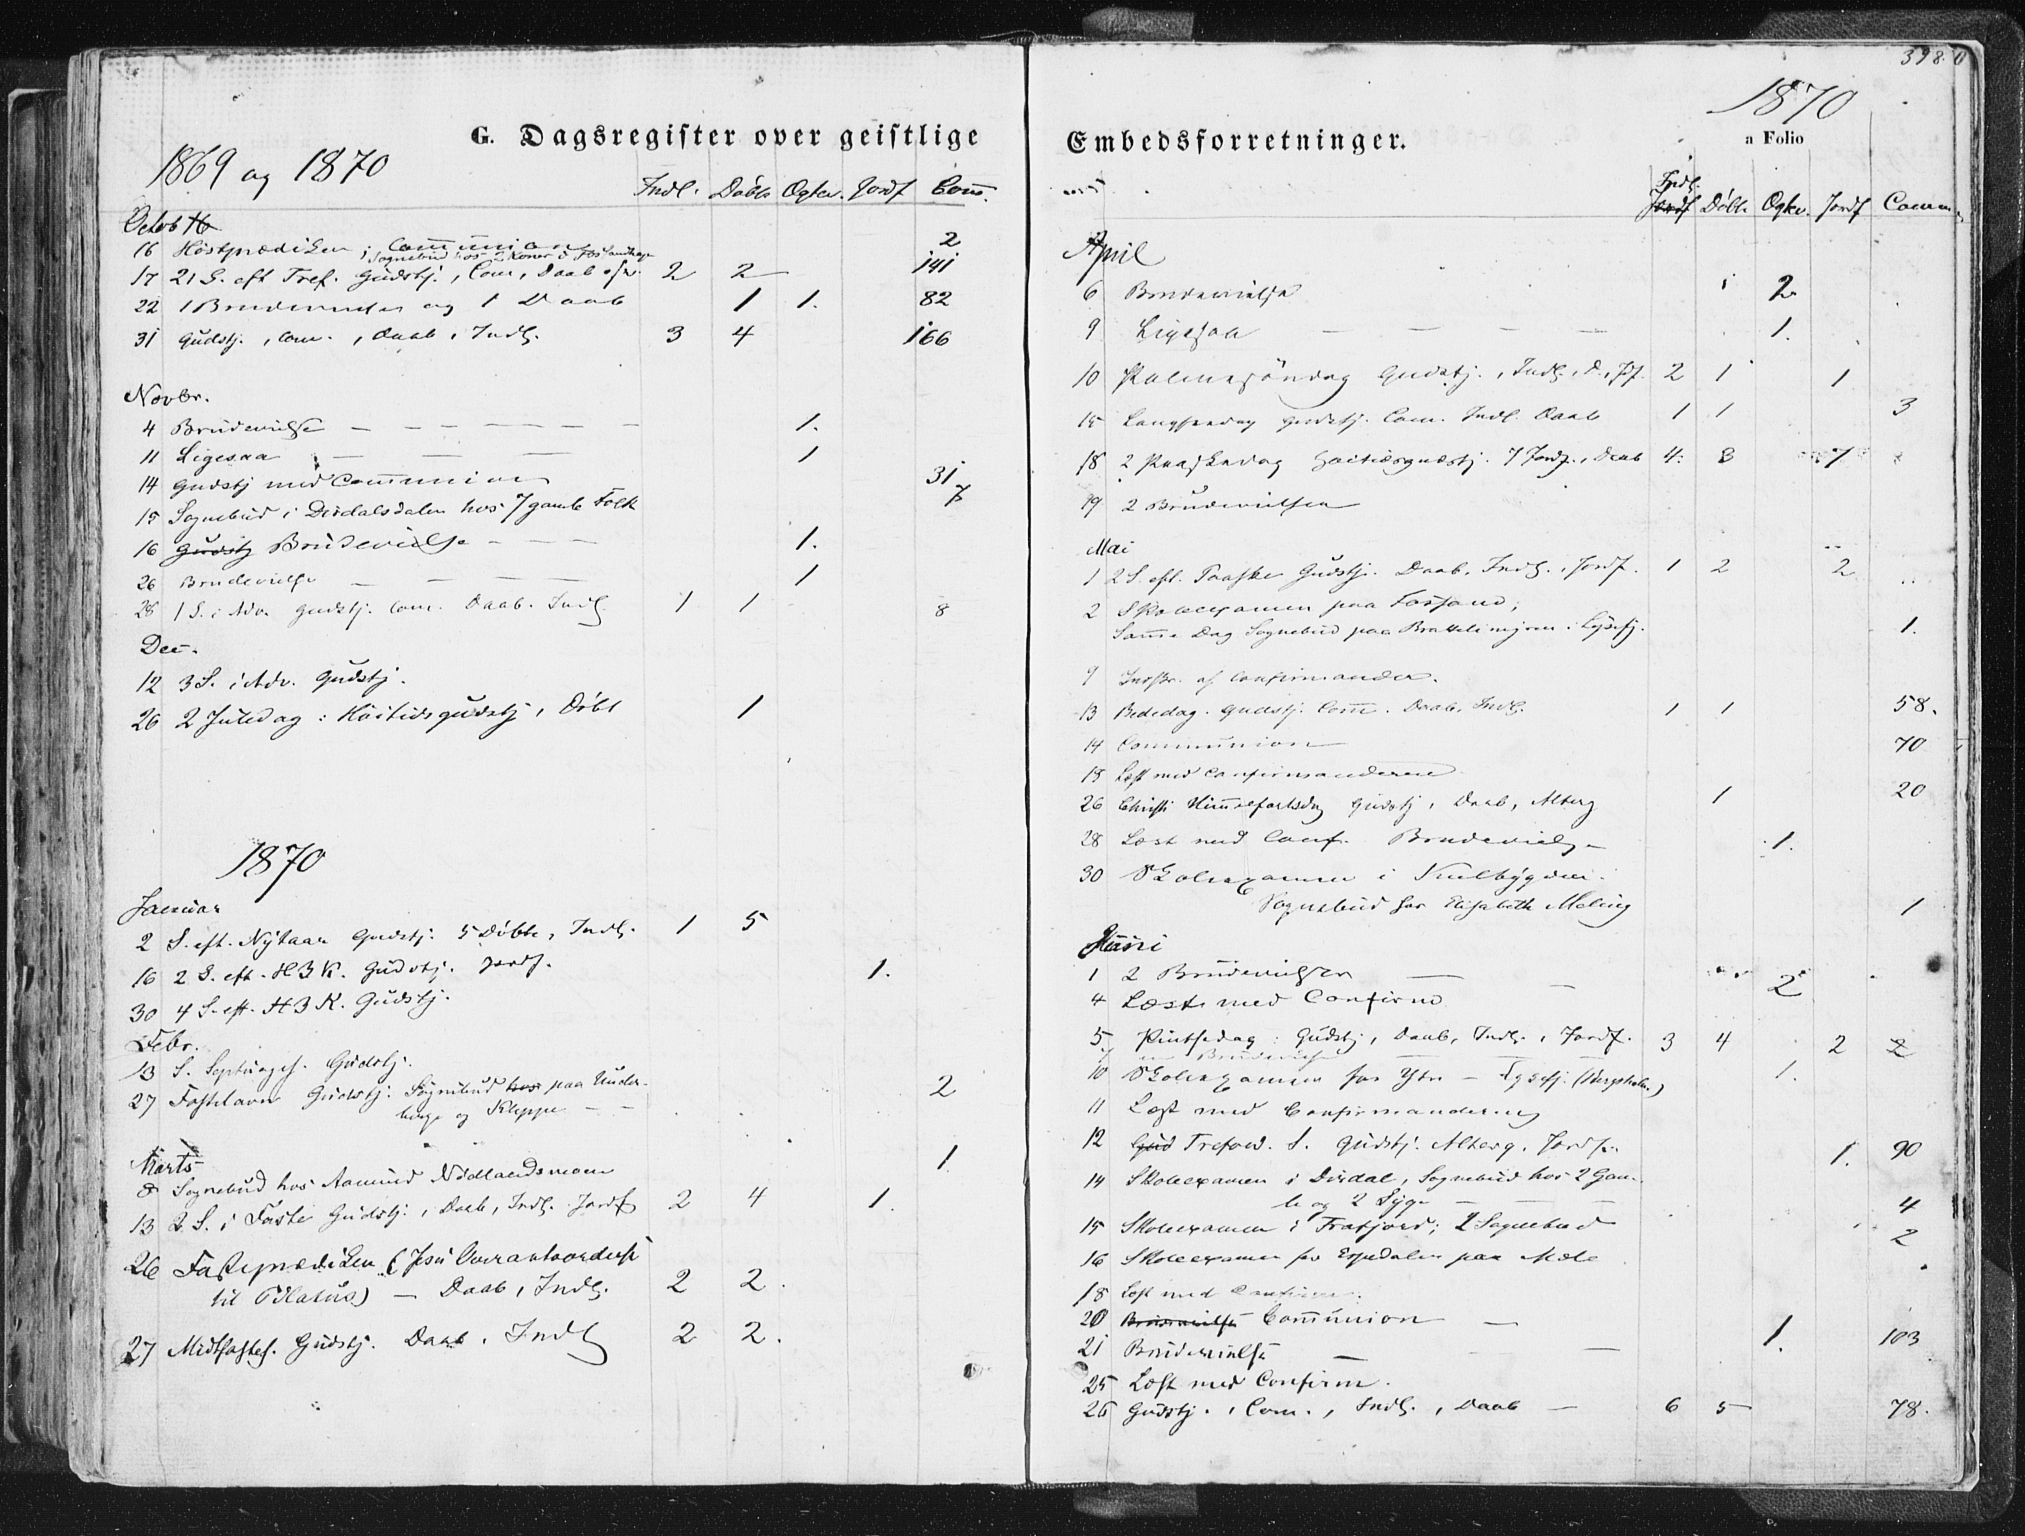 G. Dagsregister over geistlige
1869 og 1870
Indl. Døbte Ogtev. Jordf Com.
Octob
16 Høstprædiken; Communion 2
Sognebud hos 2 Koner
17 21 S. eft Tref. Gudstj., Com, Daab 2 2 141
22 1 Brudevielse og 1 Daab 1 1. 82
31 Gudstj., Com., Daab, Indl. 3 4 166
Novbr.
4 Brudevielse — — — — — — 1.
11 Ligesaa — — — 1
14 Gudstj med Communion 31
15 Sognebud i Dirdalsdalen hos 7 gamle Folk 7
16 Gudstj Brudevielse - — — 1.
26 Brudevielse — — — 1
28 1 S. i Adv. Gudstj. Com. Daab. Indl. 1 1 8
Dec.
12 3 S. i Adv. Gudstj.
26 2 Juledag: Høitidsgudstj, Døbt 1
1870
Januar
2 S. eft. Nytaar Gudstj. 5 Døbte, Indl. 1 5
16 2 S. eft. H 3 K. Gudstj. Jordf. 1.
30 4 S. eft. H 3 K. Gudstj.
Febr.
13 S. Septuages. Gudstj.
27 Fastelavn Gudstj. Sognebud hos paa Under-
berge og Kleppe — — 2
Marts
8 Sognebud hos Aamund Nødlandsmoen 1.
13 2 S. i Faste Gudstj., Daab, Indl. Jordf 2 4 1.
26 Fasteprædiken (Jesu Overantvordelse
til Pilatus) — Daab, Indl. 2 2.
27 Midfastes. Gudstj. Daab, Indl 2 2.
398
Embedsforretninger.
1870
a Folio
Indl.
Jordf Døbte Ogtev. Jordf Comm.
April
6 Brudevielse 2
9 Ligesaa — — — — 1.
10 Palmesøndag Gudstj., Indl., D., Jf. 2 1 1
15 Langfredag Gudstj. Com. Indl. Daab 1 1 3
18 2 Paaskedag Høitidsgudstj. 7 Jordf., Daab 4. 3 7
19 2 Brudevielser
Mai
1 2 S. eft. Paaske Gudstj. Daab, Indl., Jordf. 1 2 2
2 Skoleexamen paa Fossand;
Samme Dag Sognebud paa Brattelimyren i Lysefj. 1.
9 Indskr. af Confirmander.
13 Bededag. Gudstj. Com. Daab, Indl. 1 1 58.
14 Communion 70
18 Læst med Confirmanderne
26 Christi Himmelfartsdag Gudstj, Daab, Alterg 1 20
28 Læst med Conf. Brudevielse 1.
30 Skoleexamen i
Sognebud hos Elisabeth Meling 1
Juni
1 2 Brudevielser — — 2
4 Læst med Confirm
5 Pintsedag: Gudstj, Daab, Indl., Jordf. 3 4 2 2
7 en Brudevielse 1.
10 Skoleexamen for Ytre — Lysefj. (Bergsholm.)
11 Læst med Confirmanderne
12 Gud Trefold. S. Gudstj. Alterg, Jordf. 1. 90
14 Skoleexamen i Dirdal, Sognebud hos 2 Gam-
le og 2 Syge — — — 4
15 Skoleexamen i Frafjord; 2 Sognebud 2
16 Skoleexamen for Espedalen paa Mæle
18 Læst med Confirm.
20 Brudevielse Communion — 103
21 Brudevielse — — 1.
25 Læst med Confirm.
26 Gudstj., Com., Indl., Daab — 6 5 78.